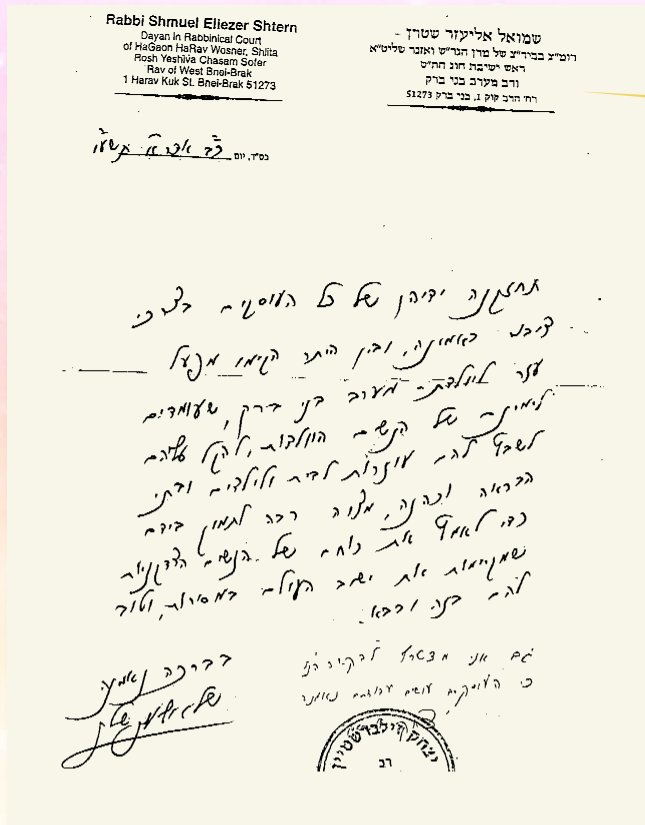 Rabbi Shmuel Eliezer Shtern
Dayan in Rabbinical Court
of HaGaon HaRav Wosner, Shlita
Rosh Yeshiva Chasam Sofer
Rav of West Bnei-Brak
1 Harav Kuk St. Bnei-Brak 51273
שמואל אליעזר שטרן
רומ״צ בביד״צ של מרן הגר״ש ואזנר שליט״א
ראש ישיבת חוג חת״ס
ורב מערב בני ברק
רח׳ הרב קוק 1, בני ברק 51273
בס״ד, יום כ״ב אדר א׳ תשע״ו
תחזקנה ידיהן של כל העוסקים בצרכי
ציבור באמונה, ובין היתר הקימו מפעל
עזר ליולדת מערב בני ברק, שעומדים
לימינם של הנשים היולדות, להקל עליהם
לשכור להם עוזרות לבית ולילדים ובתי
הבראה וכהנה, מצוה רבה לתמוך בידם
כדי לאמץ את כוחם של הנשים הצדקניות
שמקיימות את ישוב העולם במסירות, וטוב
להם בזה ובבא.
בברכה נאמנה
גם אני מצטרף
כי העוסקים עושים עבודתם נאמנה
יצחק זילברשטיין
רב